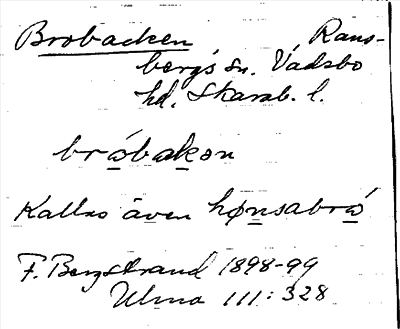 Brobacken Rans-
bergs sn. Vadsbo
hd. Skarab. l.
bro̲bak̲ən
Kallas även høn̲sabrо̲́
F. Bergstrand 1898-99
Ulma 111:328